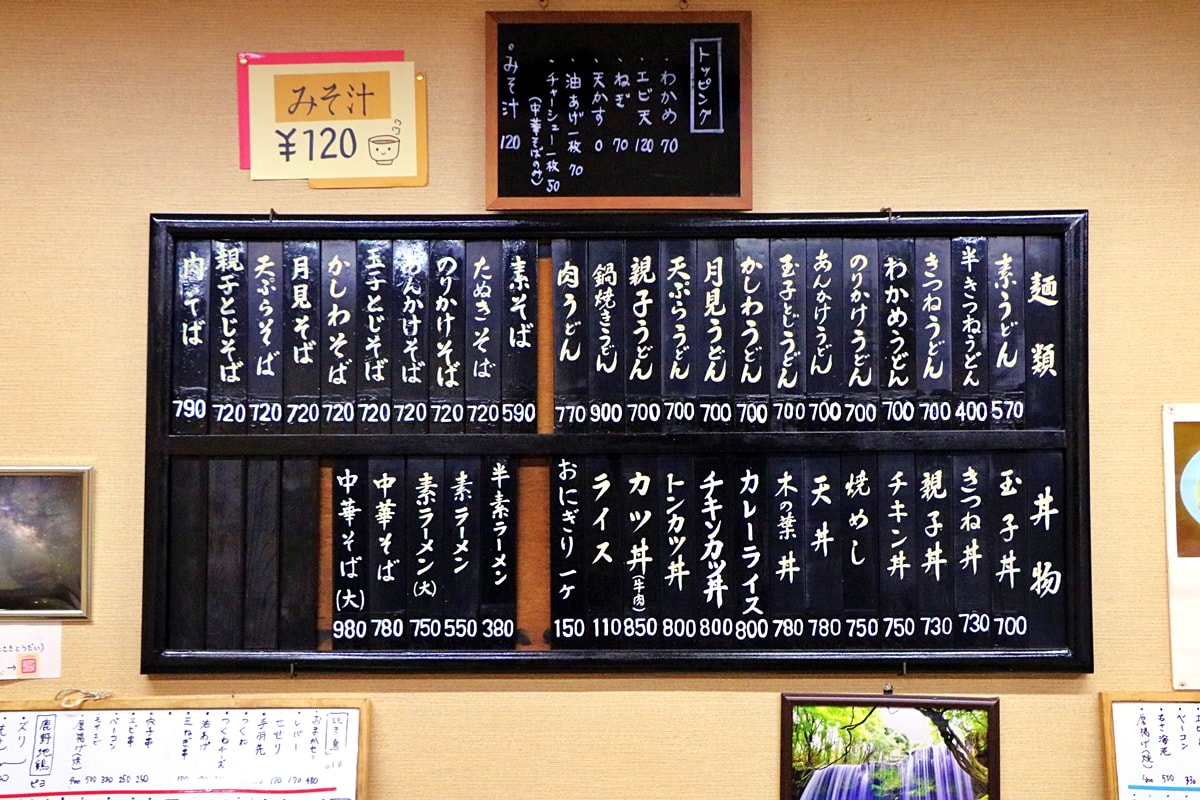 みそ汁
¥120
トッピング
・わかめ 70
・エビ天 120
・ねぎ 70
・天かす 0
・油あげ一枚 70
・チャーシュー一枚 50
(中華そばのみ)
みそ汁 120
麺類
素うどん 570
半きつねうどん 400
きつねうどん 700
わかめうどん 700
のりかけうどん 700
あんかけうどん 700
玉子とじうどん 700
かしわうどん 700
月見うどん 700
天ぷらうどん 700
親子うどん 700
鍋焼きうどん 900
肉うどん 770
素そば 590
たぬきそば 720
のりかけそば 720
あんかけそば 720
玉子とじそば 720
かしわそば 720
月見そば 720
天ぷらそば 720
親子とじそば 720
肉そば 790
丼物
玉子丼 700
きつね丼 730
親子丼 730
チキン丼 750
焼めし 750
天丼 780
木の葉丼 780
カレーライス 800
チキンカツ丼 800
トンカツ丼 800
カツ丼(牛肉) 850
ライス 110
おにぎり一ケ 150
半素ラーメン 380
素ラーメン 550
素ラーメン(大) 750
中華そば 780
中華そば(大) 980
レバー
せせり
手羽先
つくね
つくねチーズ
油あげ
三ねぎ串
エビ串
ベーコン
厚揚げ(焼)
鹿野地鶏
ピヨ
ズリ
厚揚げ(焼)